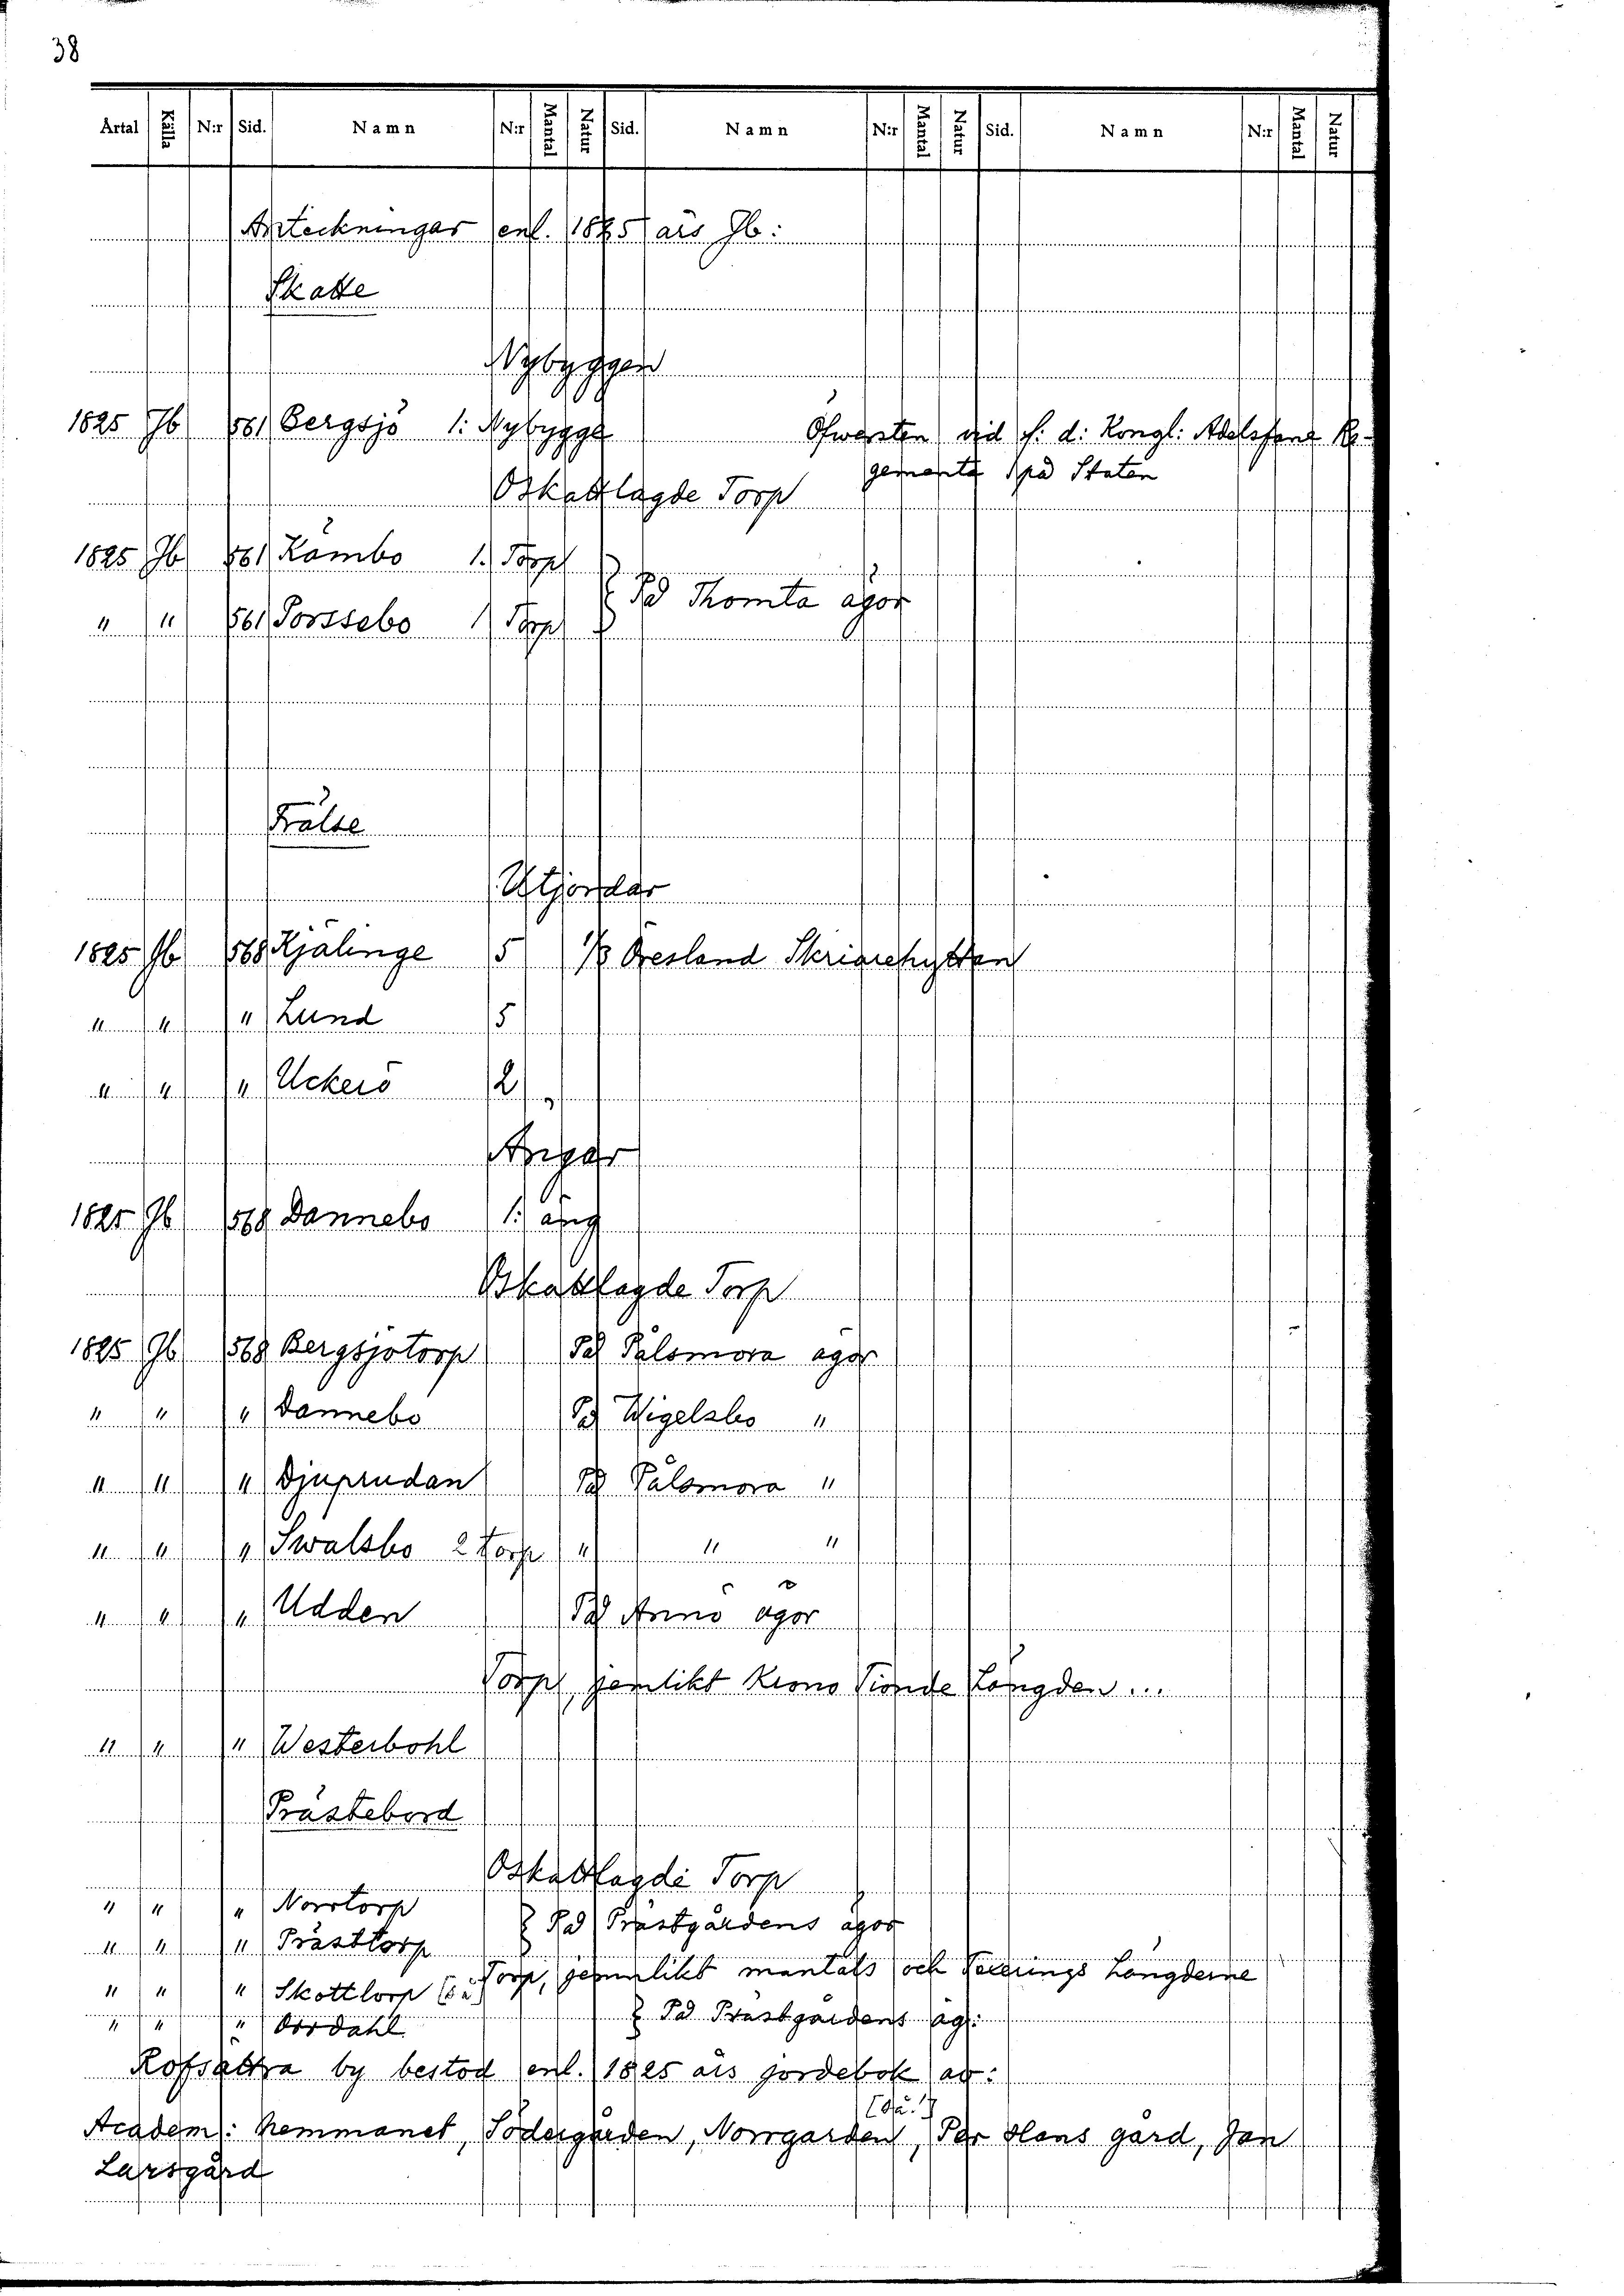 38
Årtal Källa N:r Sid. Namn N:r Mantal Natur Sid. Namn N:r Mantal Natur Sid. Namn N:r Mantal Natur
Anteckningar enl. 1825 års Jb:
Skatte
Nybyggen
1825 Jb 561 Bergsjö 1: Nybygge Öfwersten vid f. d: Kongl: Adelsfane Re-
gementet på Staten
Oskattlagde Torp
1825 Jb 561 Kämbo 1. Torp
På Thomta ägor
" " 561 Porssebo 1 Torp
Frälse
Utjordar
1825 Jb 568 Kjälinge 5 1/3 Öresland Skriarehyttan
" " " Lund 5
" " " Uckerö 2
Ängar
1825 Jb 568 Dannebo 1: äng
Oskattlagde Torp
1825 Jb 568 Bergsjötorp På Pålsmora ägor
" " " Dannebo På Wigelsbo "
" " " Djuprudan På Pålsmora "
" " " Swalsbo 2 torp " " "
" " " Udden På Annö ägor
Torp, jemlikt Krono Tionde Längden ...
" " " Westerbohl
Prästebord
Oskattlagde Torp
" " " Norrtorp
På Prästgårdens ägor
" " " Prästtorp
Torp, jemnlikt mantals och Taxerings Längderne
" " " Skottlorp (så)
På Prästgårdens äg:
" " " Orrdahl
Rofsättra by bestod enl. 1825 års jordebok av:
[då!]
Academ: hemmanet, Södergården, Norrgarden, Per Hans gård, Jan
Larsgård